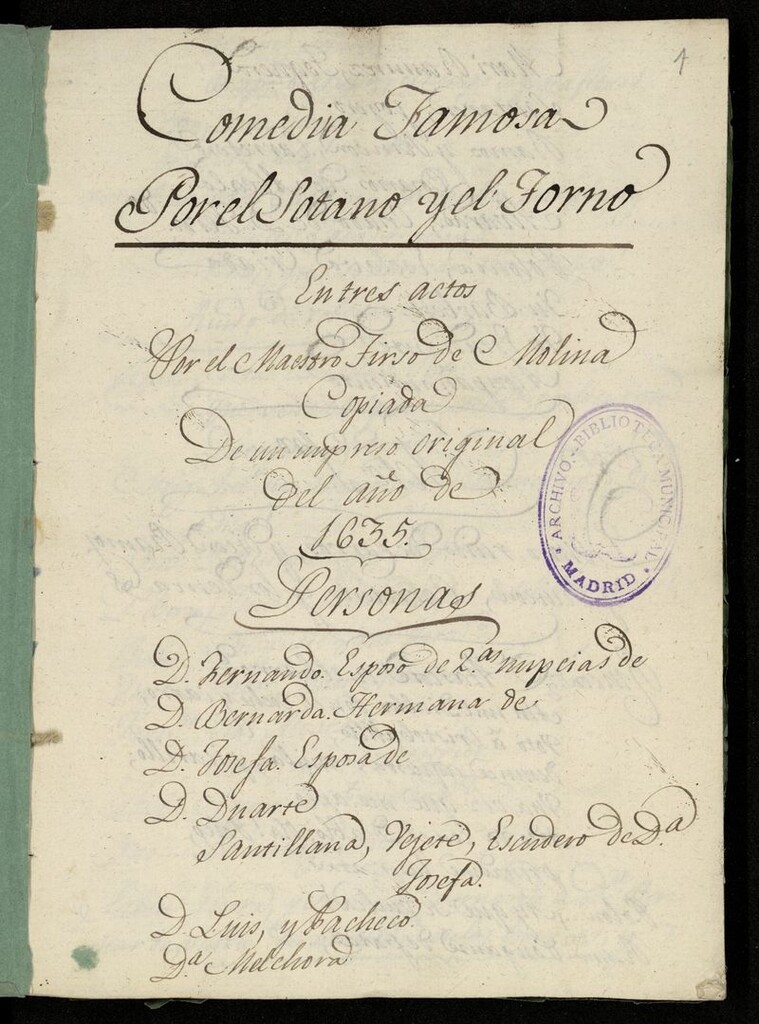 1
Comedia Famosa
Por el Sotano y el Torno
En tres actos
Por el Maestro Tirso de Molina
Copiada
De un impreso original
del año de
1635.
Personas
D. Fernando. Esposo de 2.as nupcias de
D. Bernarda. Hermana de
D. Josefa. Esposa de
D. Duarte
Santillana, Vejete, Escudero de D.a
Josefa.
D. Luis, y Pacheco
D.a Melchora
ARCHIVO-BIBLIOTECA MUNICIPAL
* MADRID *